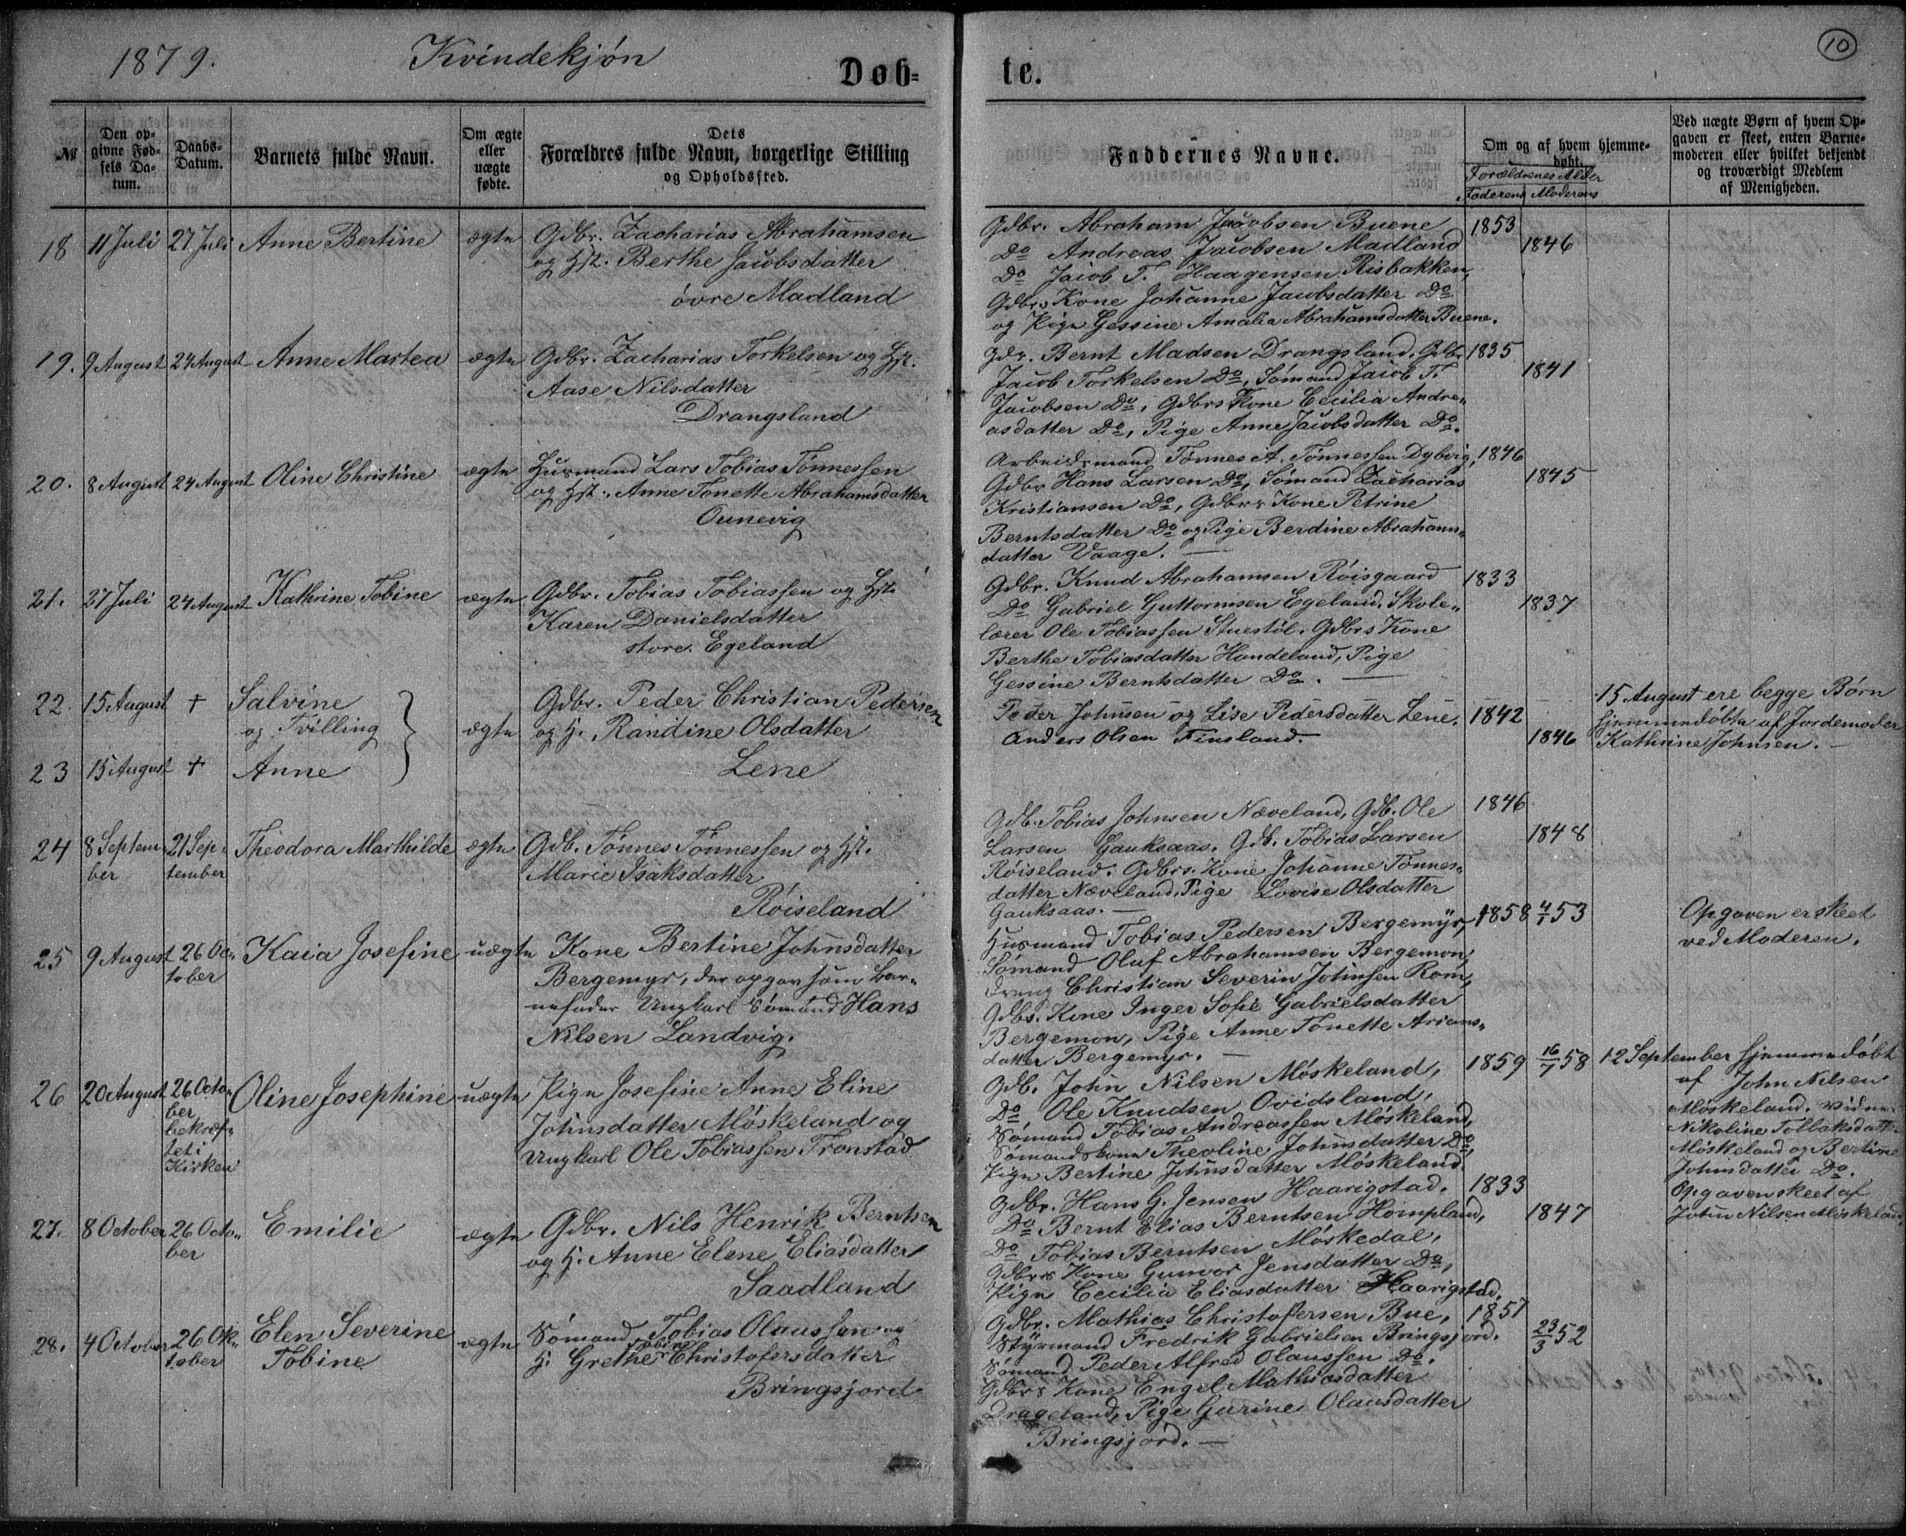 1879. Kvindekjøn
Døb=
te.
10
№
Den op-
givne Fød-
sels Da-
tum.
Daabs-
Datum.
Barnets fulde Navn.
Om ægte
eller
uægte
fødte.
Dets
Forældres fulde Navn, borgerlige Stilling
og Opholdssted.
Faddernes Navne.
Om og af hvem hjemme-
døbt.
Forældrenes Alder
Faderens Moderens
Ved uægte Børn af hvem Op-
gaven er skeet, enten Barne-
moderen eller hvilket bekjendt
og troværdigt Medlem
af Menigheden.
18 11 Juli 27 Juli Anne Bertine ægte
Gdbr. Zacharias Abrahamsen
og Hst. Berthe Jacobsdatter
øvre Madland
Gdbr. Abraham Jacobsen Buene
Do Andreas Jacobsen Madland
Do Jacob T. Haagensen Risbakken,
Gdbrs Kone Johanne Jacobsdatter Do
og Pige Gessine Amalia Abrahamsdatter Buene.
1853
1846
19. 9 August 24 August Anne Martea ægte
Gdbr. Zacharias Torkelsen og Hst.
Aase Nilsdatter
Drangsland
Gdr. Bernt Madsen Drangsland, Gdbr
Jacob Torkelsen Do, Sømand Jacob T.
Jacobsen Do, Gdbrs Kone Cecilia Andre-
asdatter Do, Pige Anne Jacobsdatter Do.
1835
1841
20. 8 August 24 August Oline Christine ægte
Husmand Lars Tobias Tønnessen
og Hst. Anne Tonette Abrahamsdatter
Ounevig
Arbeidsmand Tønnes A. Tønnessen Dybvig,
Gdbr Hans Larsen Do, Sømand Zacharias
Kristiansen Do, Gdbrs Kone Petrine
Berntsdatter Do og Pige Berdine Abrahams-
datter Vaage.
1846
1845
21. 27 Juli 24 August Kathrine Tobine ægte
Gdbr. Tobias Tobiassen og Hst.
Karen Danielsdatter
store Egeland
Gdbr. Knud Abrahamsen Røisgaard
Do Gabriel Guttormsen Egeland, Skole-
lærer Ole Tobiassen Stuestøl. Gdbrs Kone
Berthe Tobiasdatter Handeland, Pige
Gessine Berntsdatter Do.
1833
1837
22. 15 August + Salvine
og Tvilling
23 15 August + Anne
ægte
Gdbr. Peder Christian Pedersen
og H. Randine Olsdatter
Lene
Peder Johnsen og Lise Pedersdatter Lene.
Anders Olsen Finsland.
1842
1846
15 August ere begge Børn
hjemmedøbte af Jordemoder
Kathrine Johnsen.
24 8 Septem-
ber
21 Sep-
tember
Theodora Marthilde ægte
Gdb. Tønnes Tønnessen og Hst.
Marie Isaksdatter
Røiseland
Gdb. Tobias Johnsen Næveland, Gdb. Ole
Larsen Gauksaas. Gdb. Tobias Larsen
Røiseland. Gdbrs. Kone Johanne Tønnes-
datter Næveland, Pige Lovise Olsdatter
Gauksaas.
1846
1848
25 9 August 26 Oc-
tober
Kaia Josefine uægte
Kone Bertine Johnsdatter
Bergemyr, der opgav som Bar-
nefader Ungkarl Sømand Hans
Nilsen Landvig.
Husmand Tobias Pedersen Bergemyr,
Sømand Oluf Abrahamsen Bergemon,
Dreng Christian Severin Johnsen Rom,
Gdbs. Kone Inger Sofie Gabrielsdatter
Bergemon, Pige Anne Tonette Arians-
datter Bergemyr.
1858 4/1 53
Opgaven er skeet
ved Moderen.
26 20 August 26 Octo-
ber
bekræf-
tet i
Kirken
Oline Josephine uægte
Pige Josefine Anne Eline
Johnsdatter Møskeland og
Ungkarl Ole Tobiassen Tronstad
Gdb. John Nilsen Møskeland,
Do Ole Knudsen Ovidsland,
Sømand Tobias Andreassen Møskeland,
Sømands Kone Theoline Johnsdatter Do,
Pige Bertine Johnsdatter Møskeland
1859 16/7 58
12 September hjemmedøbt
af John Nilsen
Møskeland. Vidne
Nikoline Tollaksdatt.
Møskeland og Bertine
Johnsdatter Do.
Opgaven skeet af
John Nilsen Møskeland.
27. 8 October 26 Octo-
ber
Emilie ægte
Gdbr. Nils Henrik Berntsen
og H. Anne Elene Eliasdatter
Saadland
Gdbr. Hans G. Jensen Haarigstad.
Do Bernt Elias Berntsen Hompland,
Do Tobias Berntsen Møskedal,
Gdbrs Kone Gunvor Jensdatter Do,
Pige Cecilia Eliasdatter Haarigstad.
1833
1847
28. 4 October 26 Ok-
tober
Elen Severine
Tobine
ægte
Sømand Tobias Olaussen og
H. Grethe Tobine Christofersdatter
Bringsjord
Gdbr. Mathias Christofersen Bue,
Styrmand Fredrik Gabrielsen Bringsjord.
Sømand Peder Alfred Olaussen Do.
Gdbrs Kone Engel Mathiasdatter
Drageland, Pige Gurine Olausdatter
Bringsjord.
1857
23/3 52